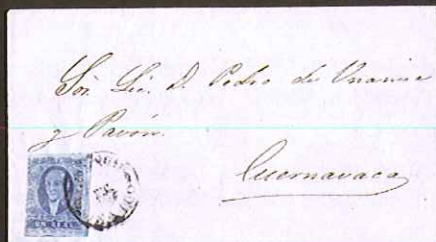 Sōr. Lic. D. Pedro de Unanue
y Pavón.
Cuernavaca
UN REAL